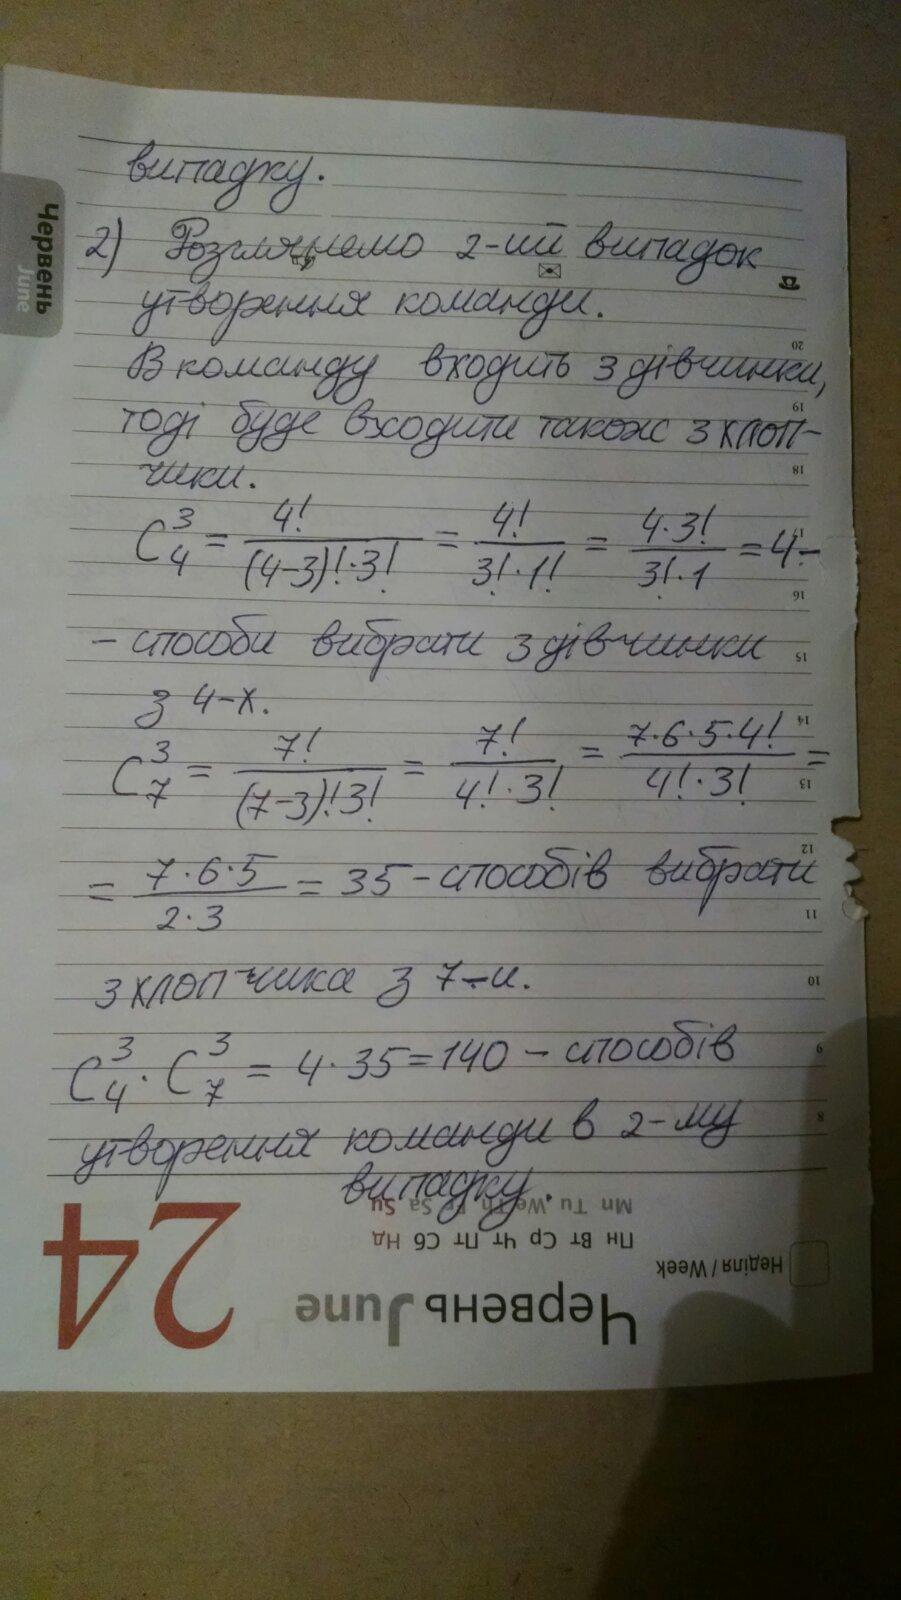 випадку.
2) Розглянемо 2-ий випадок
утворення команди.
В команду входить 3 дівчинки,
тоді буде входити також 3 хлоп-
чики.
C₄³ = 4!/((4-3)!·3!) = 4!/(3!·1!) = 4·3!/(3!·1) = 4-
- способи вибрати 3 дівчинки
з 4-х.
C₇³ = 7!/((7-3)!3!) = 7!/(4!·3!) = 7·6·5·4!/(4!·3!) =
= 7·6·5/(2·3) = 35 - способів вибрати
3 хлопчика з 7-и.
C₄³ · C₇³ = 4·35 = 140 - способів
утворення команди в 2-му
випадку.
Червень
June
20
19
18
17
16
15
14
13
12
11
10
9
8
Mn Tu We Th Fr Sa Su
Пн Вт Ср Чт Пт Сб Нд
Неділя / Week
Червень June
24